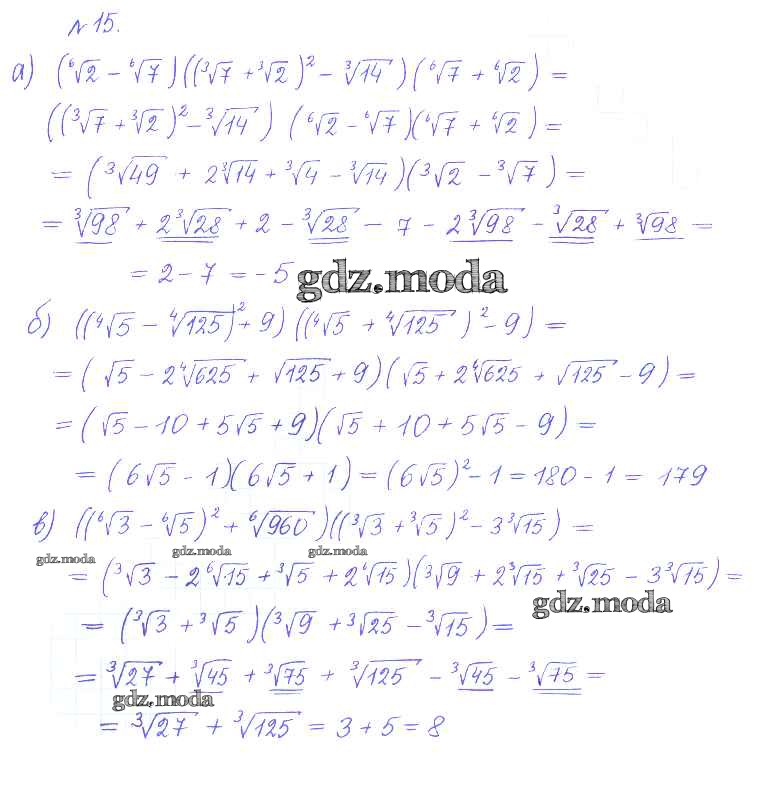 № 15.
а) (⁶√2 - ⁶√7)((³√7 + ³√2)² - ³√14)(⁶√7 + ⁶√2) =
((³√7 + ³√2)² - ³√14) (⁶√2 - ⁶√7)(⁶√7 + ⁶√2) =
= (³√49 + 2³√14 + ³√4 - ³√14)(³√2 - ³√7) =
= ³√98 + 2³√28 + 2 - ³√28 - 7 - 2³√98 - ³√28 + ³√98 =
= 2 - 7 = -5
gdz.moda
б) ((⁴√5 - ⁴√125)² + 9)((⁴√5 + ⁴√125)² - 9) =
= (√5 - 2⁴√625 + √125 + 9)(√5 + 2⁴√625 + √125 - 9) =
= (√5 - 10 + 5√5 + 9)(√5 + 10 + 5√5 - 9) =
= (6√5 - 1)(6√5 + 1) = (6√5)² - 1 = 180 - 1 = 179
в) ((⁶√3 - ⁶√5)² + ⁶√960)((³√3 + ³√5)² - 3³√15) =
gdz.moda gdz.moda gdz.moda
= (³√3 - 2⁶√15 + ³√5 + 2⁶√15)(³√9 + 2³√15 + ³√25 - 3³√15) =
gdz.moda
= (³√3 + ³√5)(³√9 + ³√25 - ³√15) =
= ³√27 + ³√45 + ³√75 + ³√125 - ³√45 - ³√75 =
gdz.moda
= ³√27 + ³√125 = 3 + 5 = 8